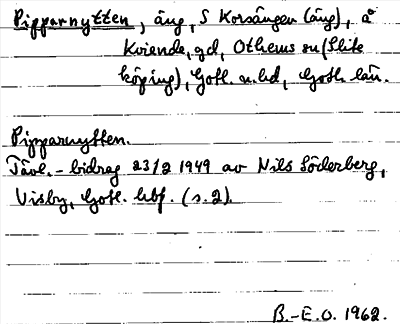 Pipparnytten, äng, S Korsängen (äng), å
Kviende, gd, Othems sn (Slite
köping), Gotl. n. hd, Gotl. län.
Pipparnytten.
Tävl.-bidrag 23/2 1949 av Nils Söderberg,
Visby, Gotl. hbf. (s. 2).
B.-E.O. 1962.